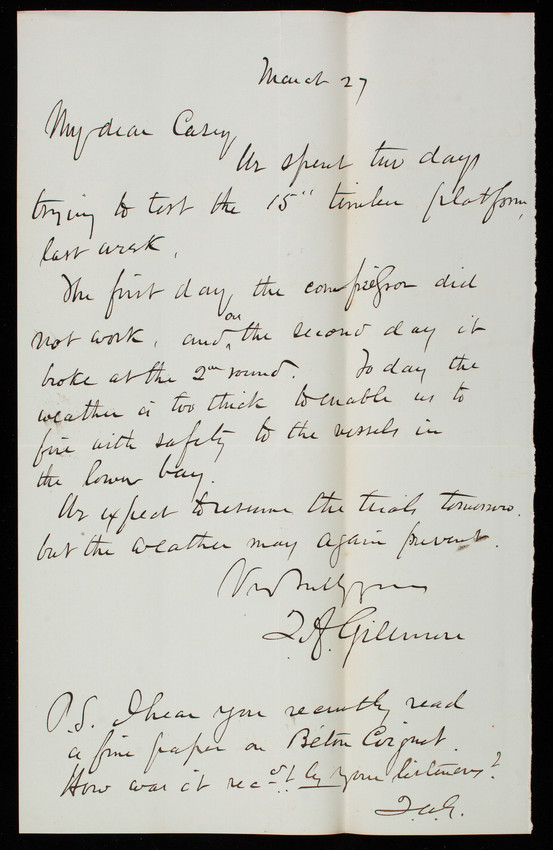 March 27
My dear Casey
We spent two days
trying to test the 15" timber platform,
last week.
The first day the did
not work, and on the second day it
broke at the 2nd round. To day the
weather is too thick to enable us to
fire with safety to the vessels in
the lower bay.
We expect to resume the trials tomorrow.
but the weather may again prevent.
Very truly yours
Q A Gillmore
P.S. I hear you recently read
a fine paper on Béton Coignet.
How was it recd. by your listeners?
Q.A.G.